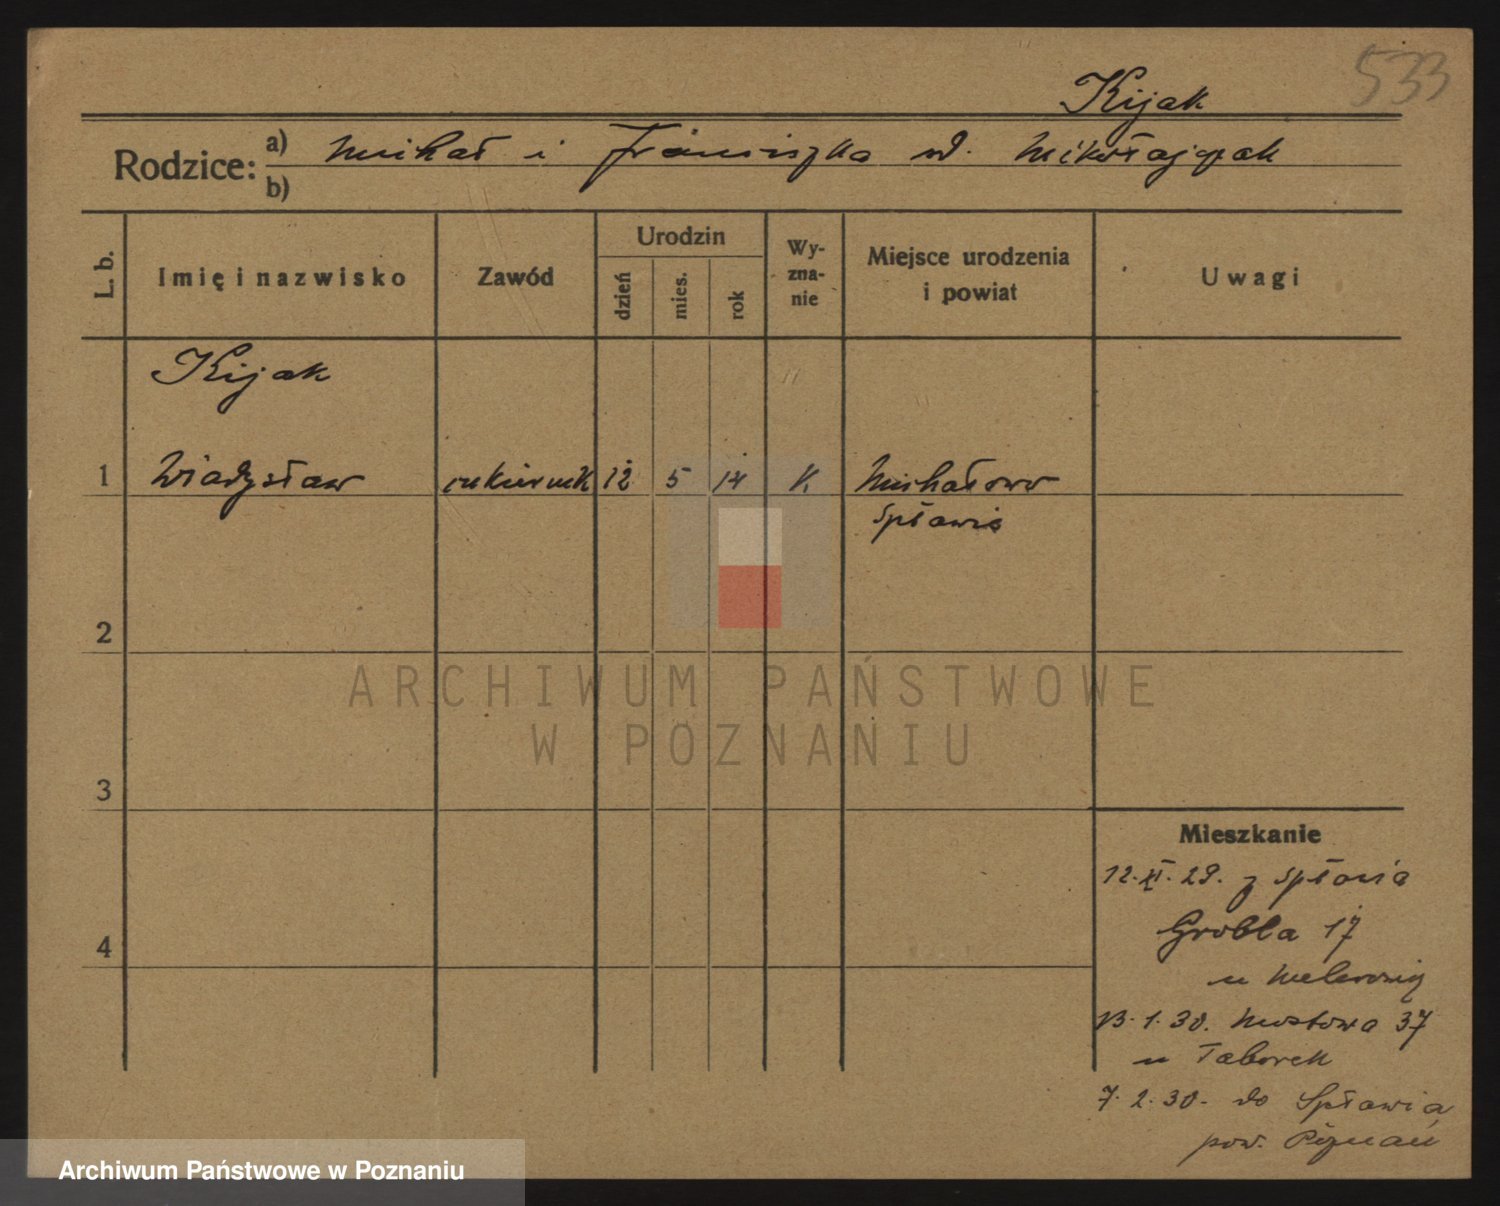 533
Kijak
Rodzice: a) Michał i Franciszka ur. Mikołajczak
b)
L. b.
Imię i nazwisko
Zawód
Urodzin
dzień
mies.
rok
Wy-
zna-
nie
Miejsce urodzenia
i powiat
Uwagi
Kijak
1 Władysław cukiernik 12 5 14 K Michałowo
Spławie
2
3
4
Mieszkanie
12.XI.29. z Spławia
Grobla 17
u
13.1.30. Mostowa 37
u Taborek
7.2.30. do Spławia
pow. Poznań
ARCHIWUM PAŃSTWOWE
W POZNANIU
Archiwum Państwowe w Poznaniu